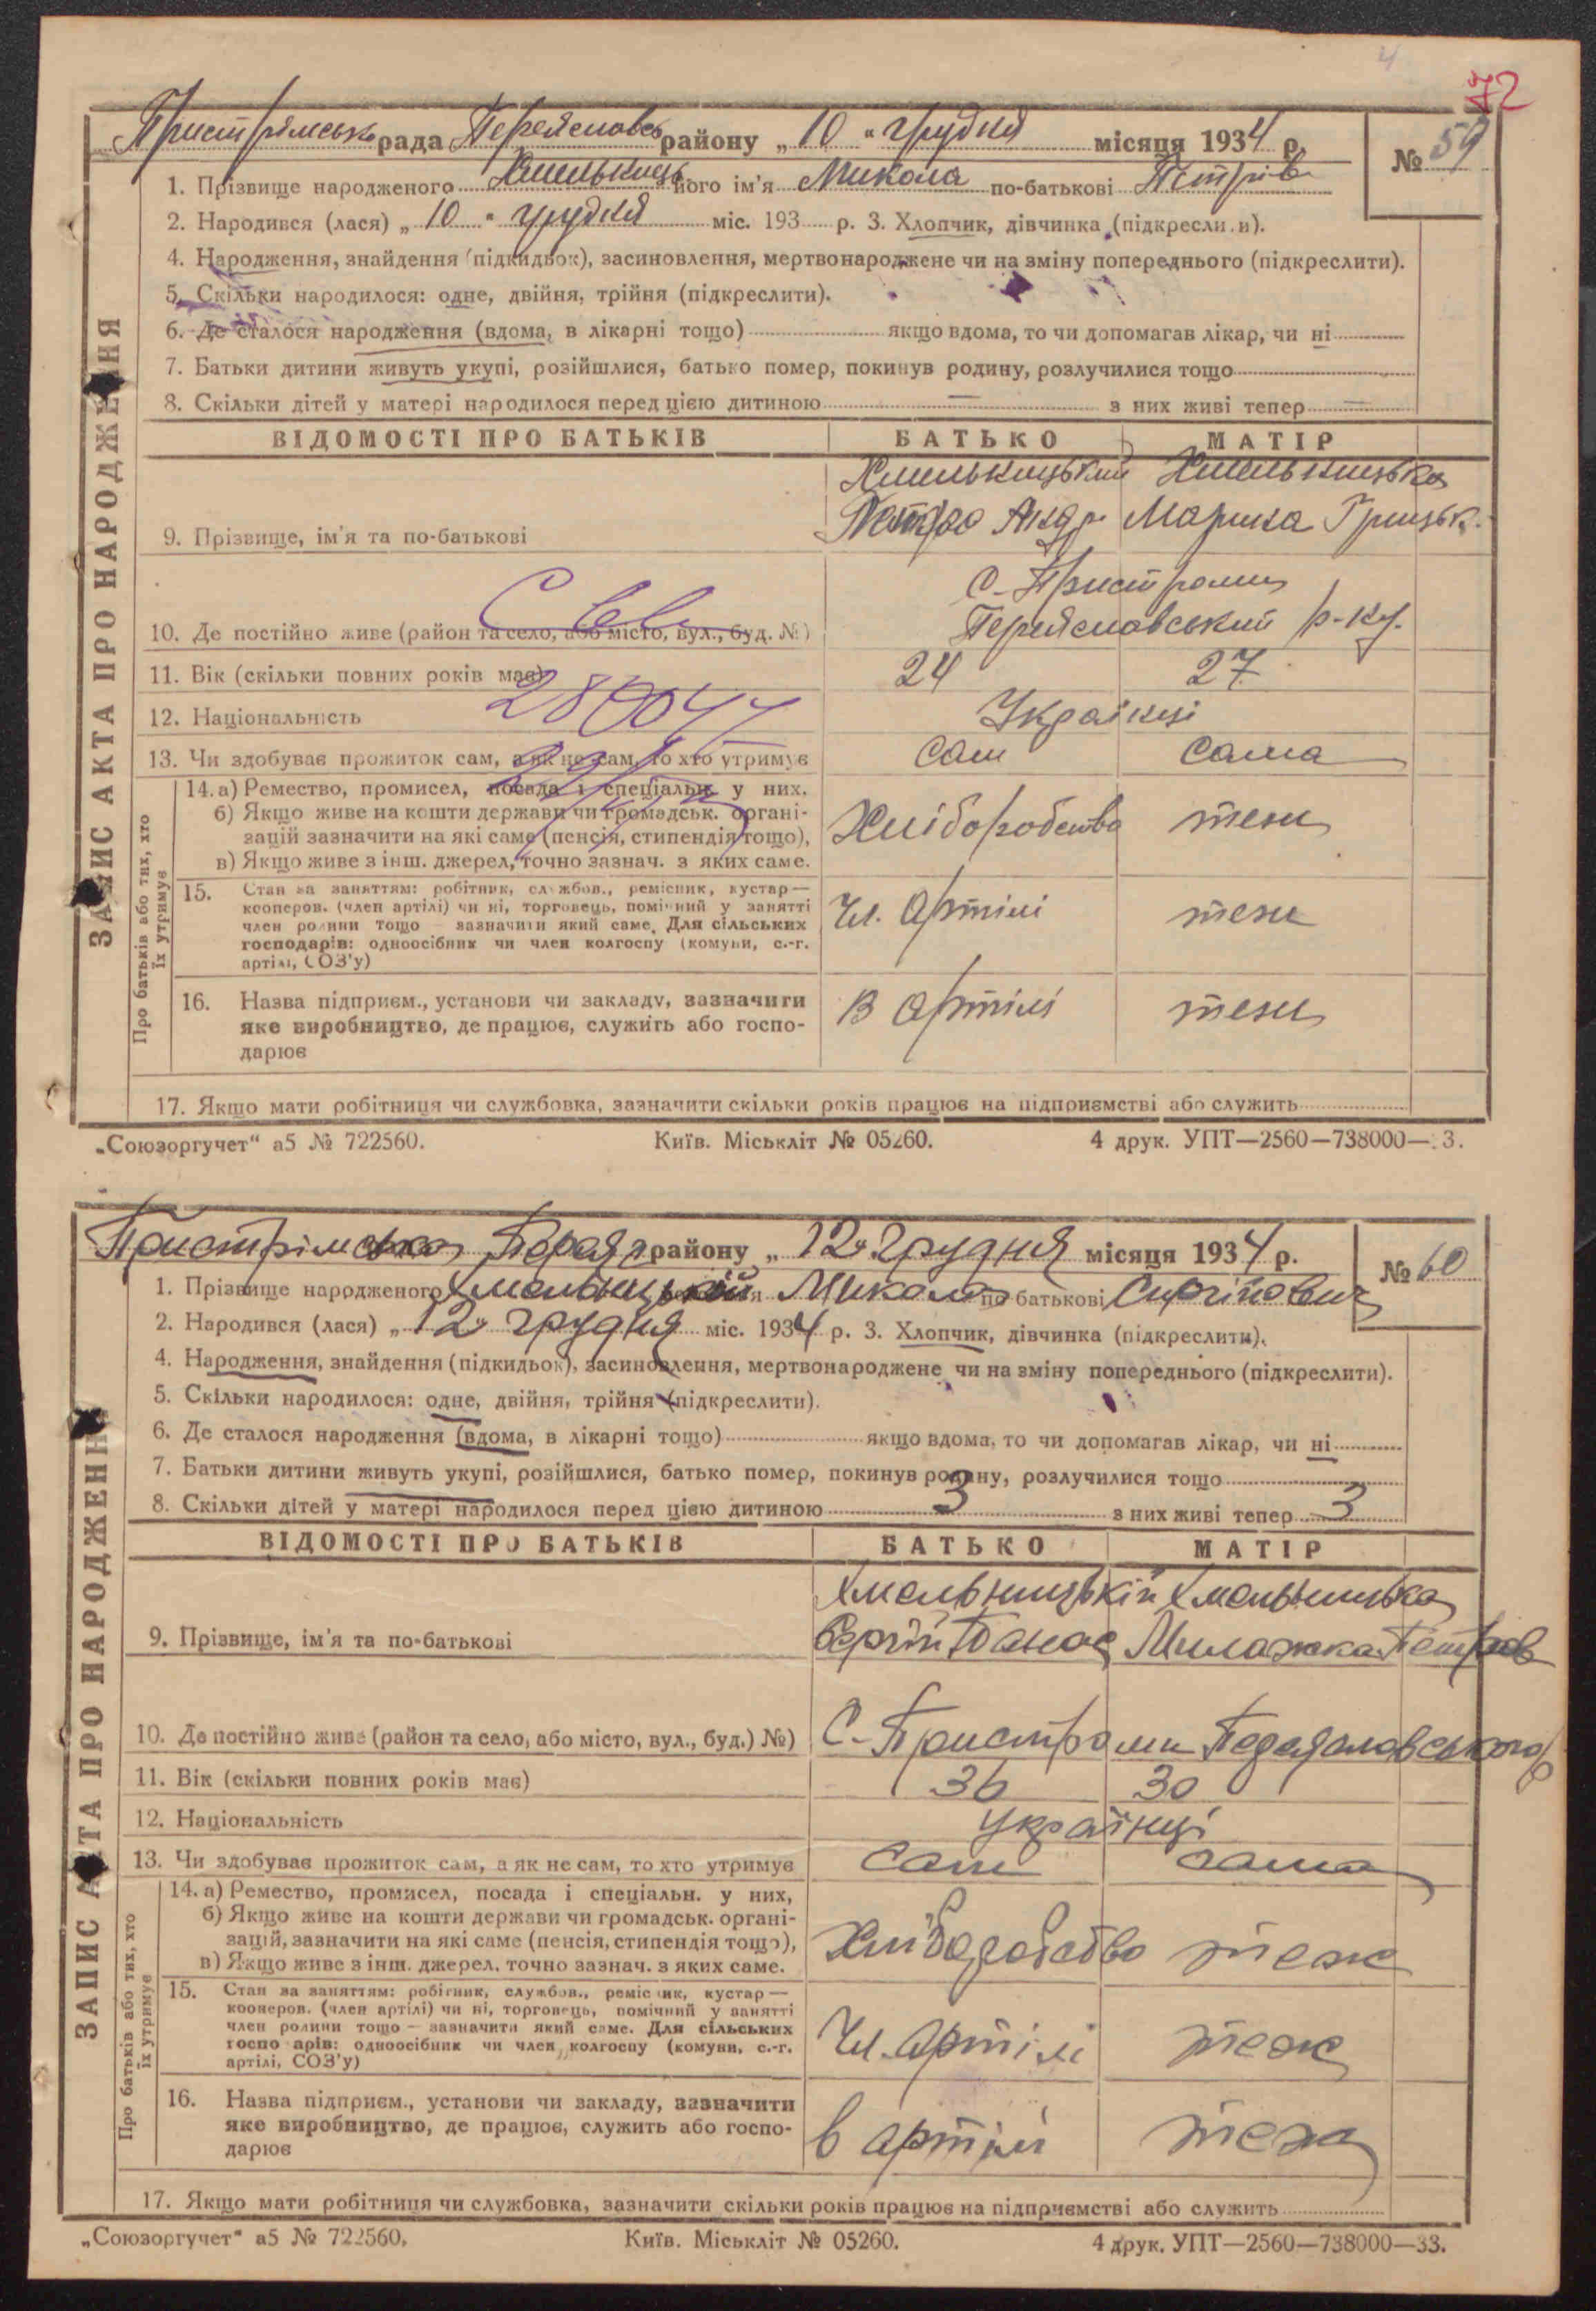 4
72
Пристрімськ рада Переяславс району „ 10 " грудня місяця 1934 р.
№ 59
1. Прізвище народженого Хмельницьк його ім'я Микола по-батькові Петрів
2. Народився (лася) „ 10 " грудня міс. 193 р. 3. Хлопчик, дівчинка (підкреслити).
4. Народження, знайдення (підкидьок), засиновлення, мертвонароджене чи на зміну попереднього (підкреслити).
5. Скільки народилося: одне, двійня, трійня (підкреслити).
6. Де сталося народження (вдома, в лікарні тощо) якщо вдома, то чи допомагав лікар, чи ні
7. Батьки дитини живуть укупі, розійшлися, батько помер, покинув родину, розлучилися тощо
8. Скільки дітей у матері народилося перед цією дитиною — з них живі тепер —
ВІДОМОСТІ ПРО БАТЬКІВ БАТЬКО МАТІР
Хмельницький Хмельницька
9. Прізвище, ім'я та по-батькові Петро Андр. Марина Грицьк.
С. Пристроми
10. Де постійно живе (район та село, або місто, вул., буд. №) Переяславський р-ку.
11. Вік (скільки повних років має) 24 27
12. Національність Українці
13. Чи здобуває прожиток сам, а як не сам, то хто утримує сам сама
14. а) Ремество, промисел, посада і спеціальн. у них.
б) Якщо живе на кошти держави чи громадськ. органі-
зацій зазначити на які саме (пенсія, стипендія тощо), Хліборобство теж
в) Якщо живе з інш. джерел, точно зазнач. з яких саме.
15. Стан за заняттям: робітник, службов., ремісник, кустар—
кооперов. (член артілі) чи ні, торговець, помічний у занятті
член родини тощо — зазначити який саме. Для сільських Чл. артілі теж
господарів: одноосібник чи член колгоспу (комуни, с.-г.
артілі, СОЗ'у)
16. Назва підприєм., установи чи закладу, зазначити В артілі теж
яке виробництво, де працює, служить або госпо-
дарює
17. Якщо мати робітниця чи службовка, зазначити скільки років працює на підприємстві або служить
Про батьків або тих, хто їх утримує
ЗАПИС АКТА ПРО НАРОДЖЕННЯ
„Союзоргучет" а5 № 722560. Київ. Міськліт № 05260. 4 друк. УПТ—2560—738000—33.
Пристрімська Переяс району „ 12 " грудня місяця 1934 р.
№ 60
1. Прізвище народженого Хмельницький Микола по батькові Сергійович
2. Народився (лася) „ 12 " грудня міс. 1934 р. 3. Хлопчик, дівчинка (підкреслити).
4. Народження, знайдення (підкидьок), засиновлення, мертвонароджене чи на зміну попереднього (підкреслити).
5. Скільки народилося: одне, двійня, трійня (підкреслити).
6. Де сталося народження (вдома, в лікарні тощо) якщо вдома, то чи допомагав лікар, чи ні
7. Батьки дитини живуть укупі, розійшлися, батько помер, покинув родину, розлучилися тощо
8. Скільки дітей у матері народилося перед цією дитиною 3 з них живі тепер 3
ВІДОМОСТІ ПРО БАТЬКІВ БАТЬКО МАТІР
Хмельницькій Хмельницька
9. Прізвище, ім'я та по-батькові Сергій Панас Миложка Петров
10. Де постійно живе (район та село, або місто, вул., буд.) №) С. Пристроми Переяславського р
11. Вік (скільки повних років має) 36 30
12. Національність українці
13. Чи здобуває прожиток сам, а як не сам, то хто утримує сам сама
14. а) Ремество, промисел, посада і спеціальн. у них,
б) Якщо живе на кошти держави чи громадськ. органі-
зацій, зазначити на які саме (пенсія, стипендія тощо), Хліборобство теж
в) Якщо живе з інш. джерел, точно зазнач. з яких саме.
15. Стан за заняттям: робітник, службов., ремісник, кустар—
кооперов. (член артілі) чи ні, торговець, помічний у занятті
член родини тощо — зазначити який саме. Для сільських Чл. артілі теж
господарів: одноосібник чи член колгоспу (комуни, с.-г.
артілі, СОЗ'у)
16. Назва підприєм., установи чи закладу, зазначити
яке виробництво, де працює, служить або госпо- в артілі теж
дарює
17. Якщо мати робітниця чи службовка, зазначити скільки років працює на підприємстві або служить
Про батьків або тих, хто їх утримує
ЗАПИС АКТА ПРО НАРОДЖЕННЯ
„Союзоргучет" а5 № 722560. Київ. Міськліт № 05260. 4 друк. УПТ—2560—738000—33.